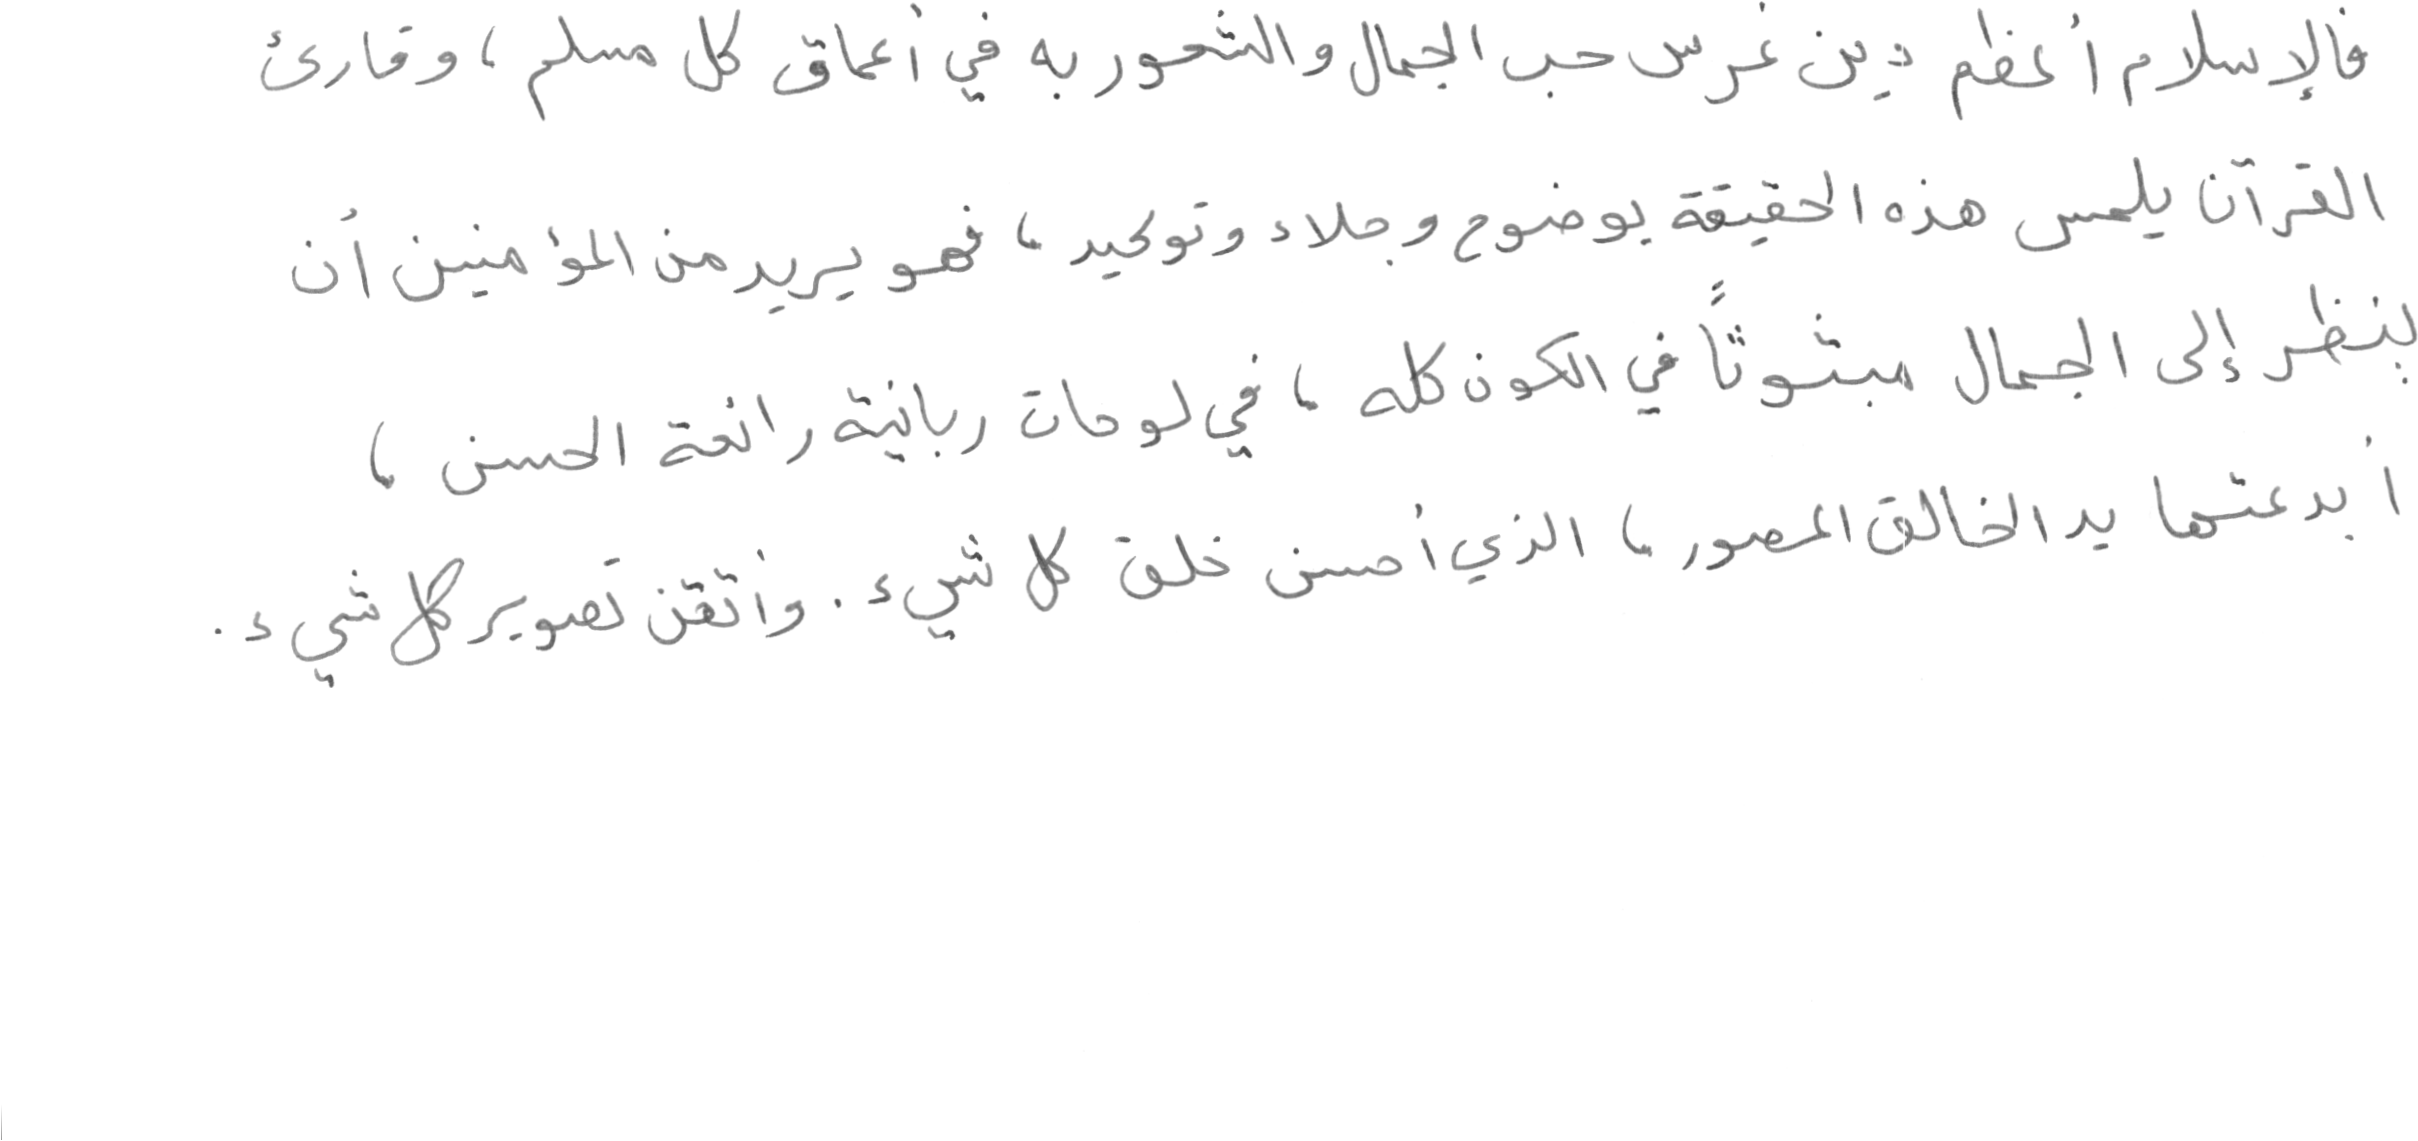 فالإسلام أعظم دين غرس حب الجمال والشعور به في أعماق كل مسلم ، وقارئ
القرآن يلمس هذه الحقيقة بوضوح وجلاء وتوكيد ، فهو يريد من المؤمنين أن
ينظر إلى الجمال مبثوثاً في الكون كله ، في لوحات ربانية رائعة الحسن ،
أبدعتها يد الخالق المصور ، الذي أحسن خلق كل شيء . وأتقن تصوير كل شيء .